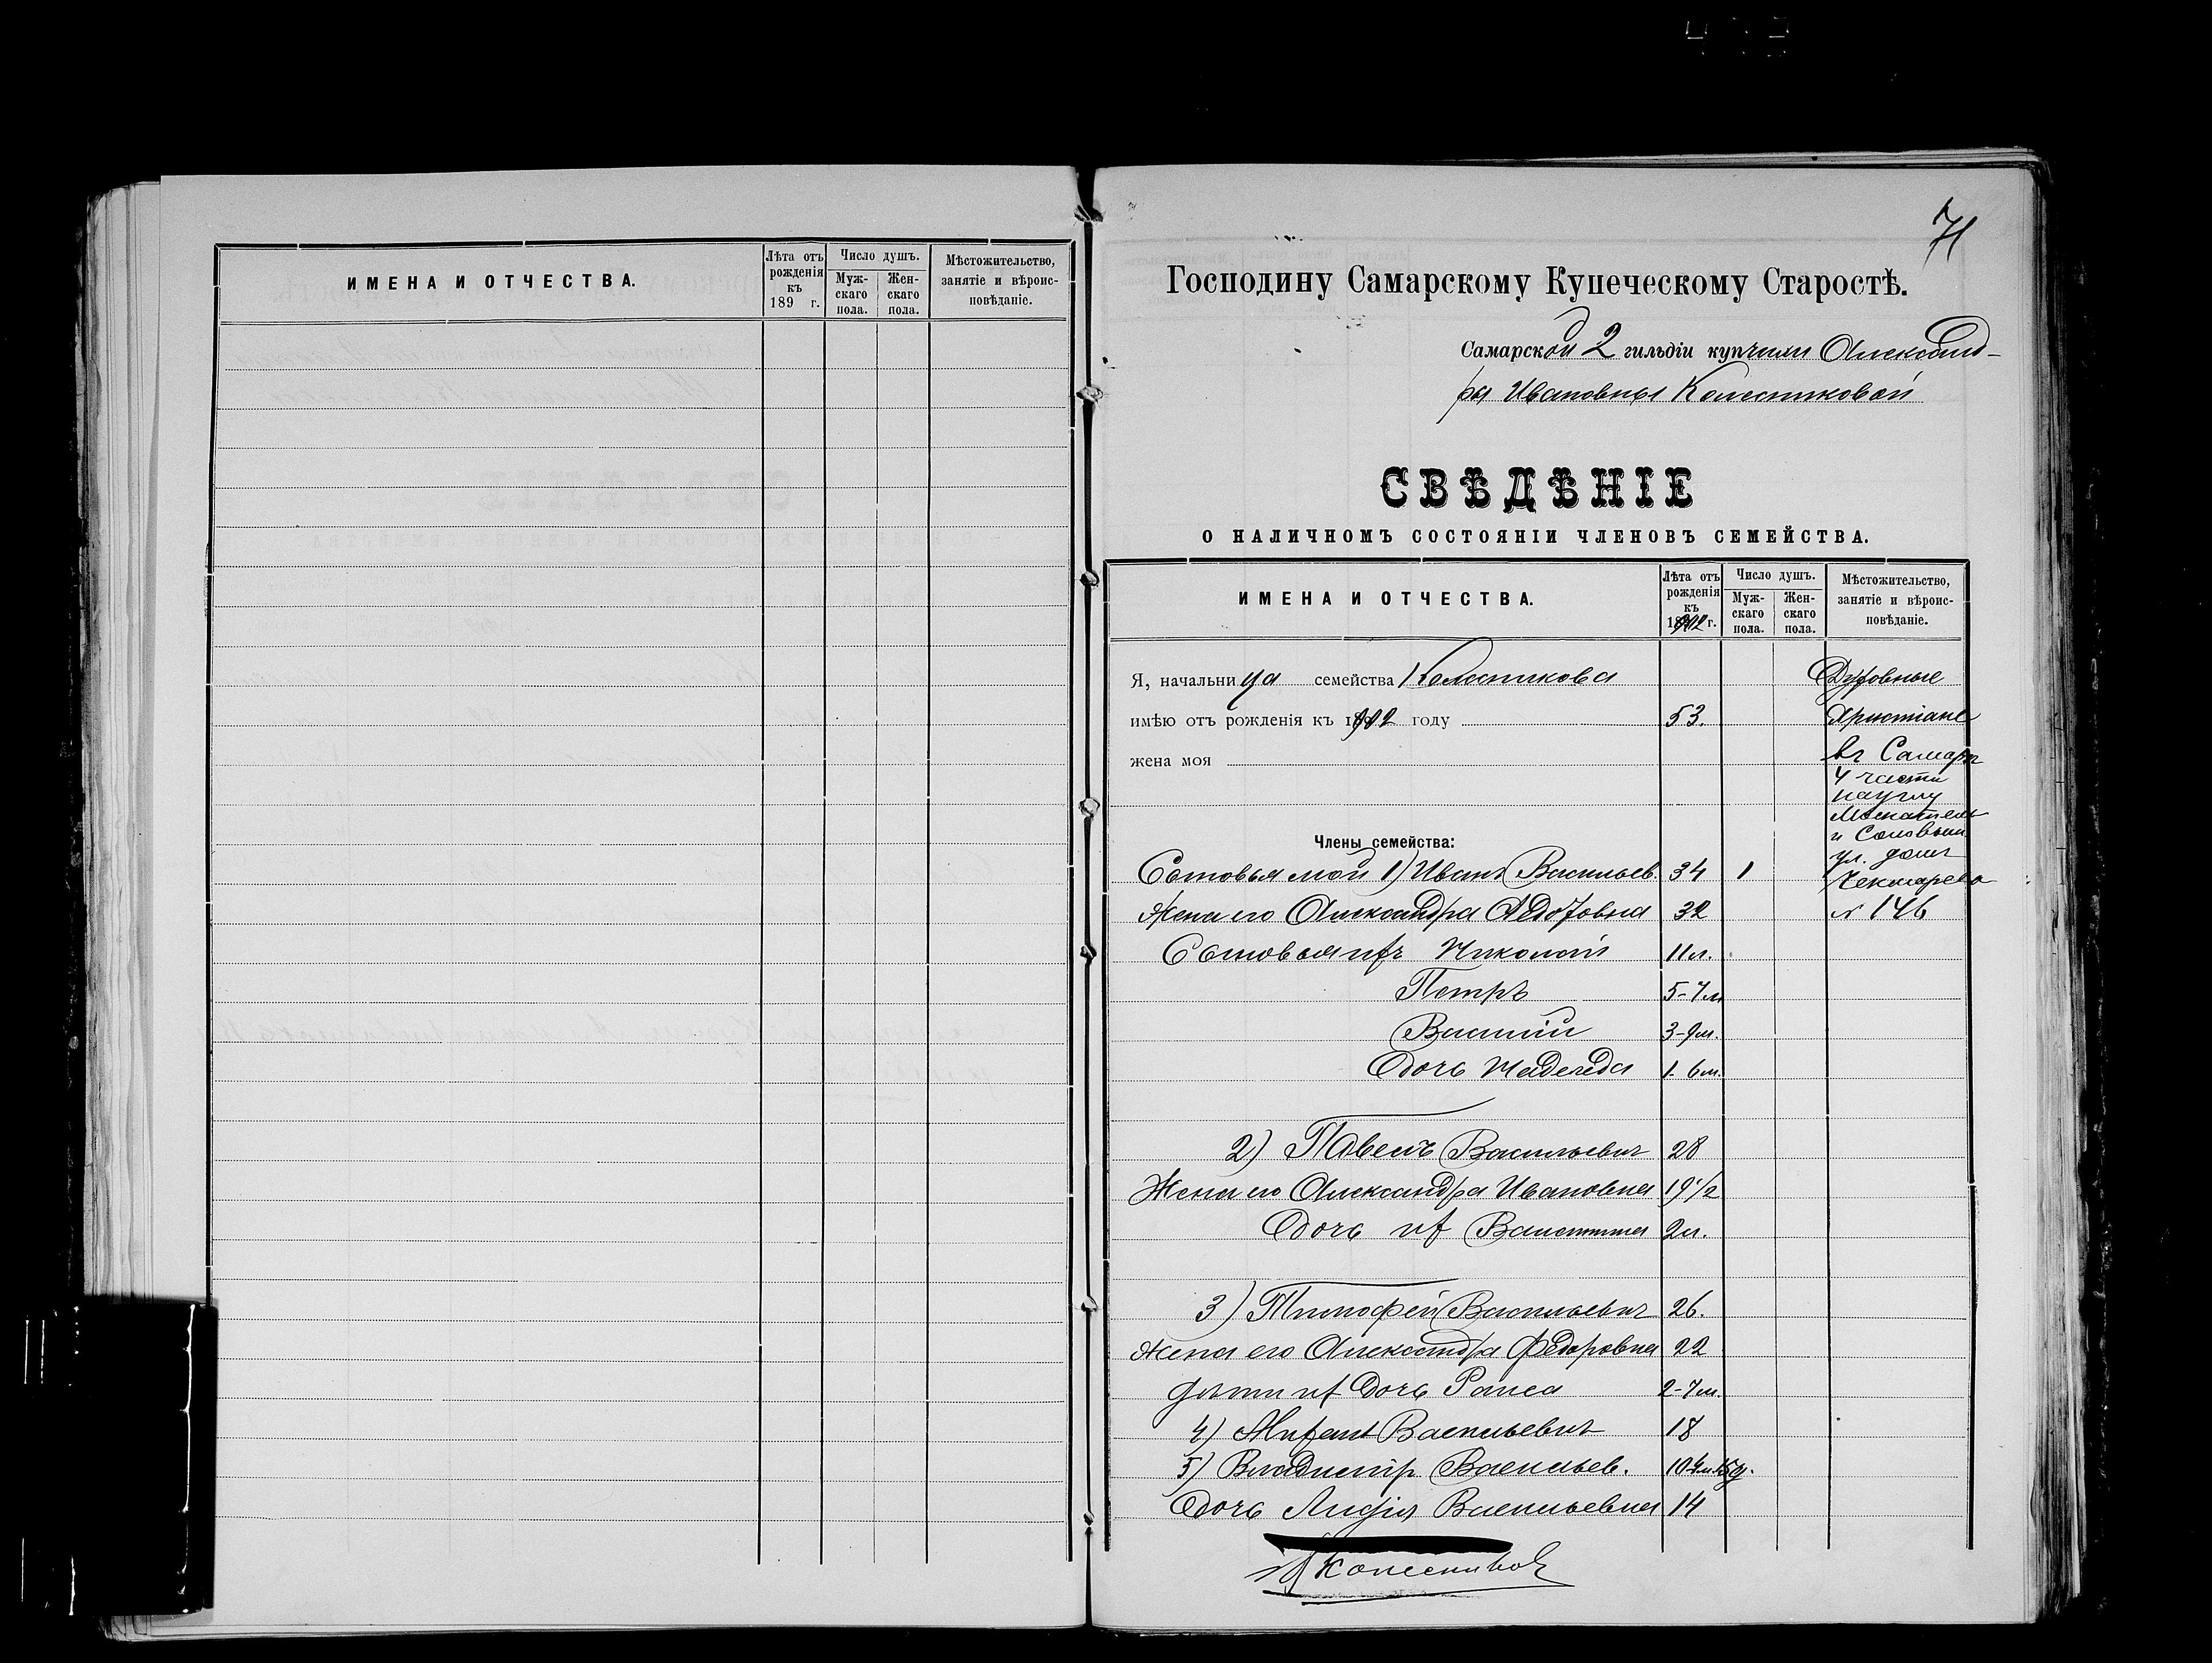 ИМЕНА И ОТЧЕСТВА.
Лѣта отъ рожденія къ 189 г.
Число душъ.
Мужскаго пола.
Женскаго пола.
Мѣстожительство, занятіе и вѣроисповѣданіе.
71
Господину Самарскому Купеческому Старостѣ.
Самарской 2 гильдіи купчихи Александ-
ры Ивановны Колесниковой
СВѢДѢНІЕ
О НАЛИЧНОМЪ СОСТОЯНІИ ЧЛЕНОВЪ СЕМЕЙСТВА.
ИМЕНА И ОТЧЕСТВА.
Лѣта отъ
рожденія
къ
1902 г.
Число душъ.
Муж-
скаго
пола.
Жен-
скаго
пола.
Мѣстожительство,
занятіе и вѣроис-
повѣданіе.
Я, начальница семейства Колесникова
имѣю отъ рожденія къ 1902 году 53.
жена моя
Духовные
Христіане
въ Самарѣ
4 части
на углу
Москател
и Соловьин.
ул. домъ
Чекмарева
№ 146
Члены семейства:
Сыновья мои 1) Иванъ Васильев. 34 1
Жена его Александра 32
Сыновья ихъ Николай 11 л.
Петръ 5-7 м
Василій 3-9 м.
Дочь Надежда 1-6 м.
2) Павелъ Васильевич 28
Жена его Александра Ивановна 19 1/2
Дочь их Валентина 2 л.
3) Тимофей Васильевич 26.
Жена его Александра Федоровна 22
Дѣти их Дочь Раиса 2-7 м.
4) Михаил Васильевич 18
5) Владимір Васильев. 10
Дочь Лидія Васильевна 14
Колесников